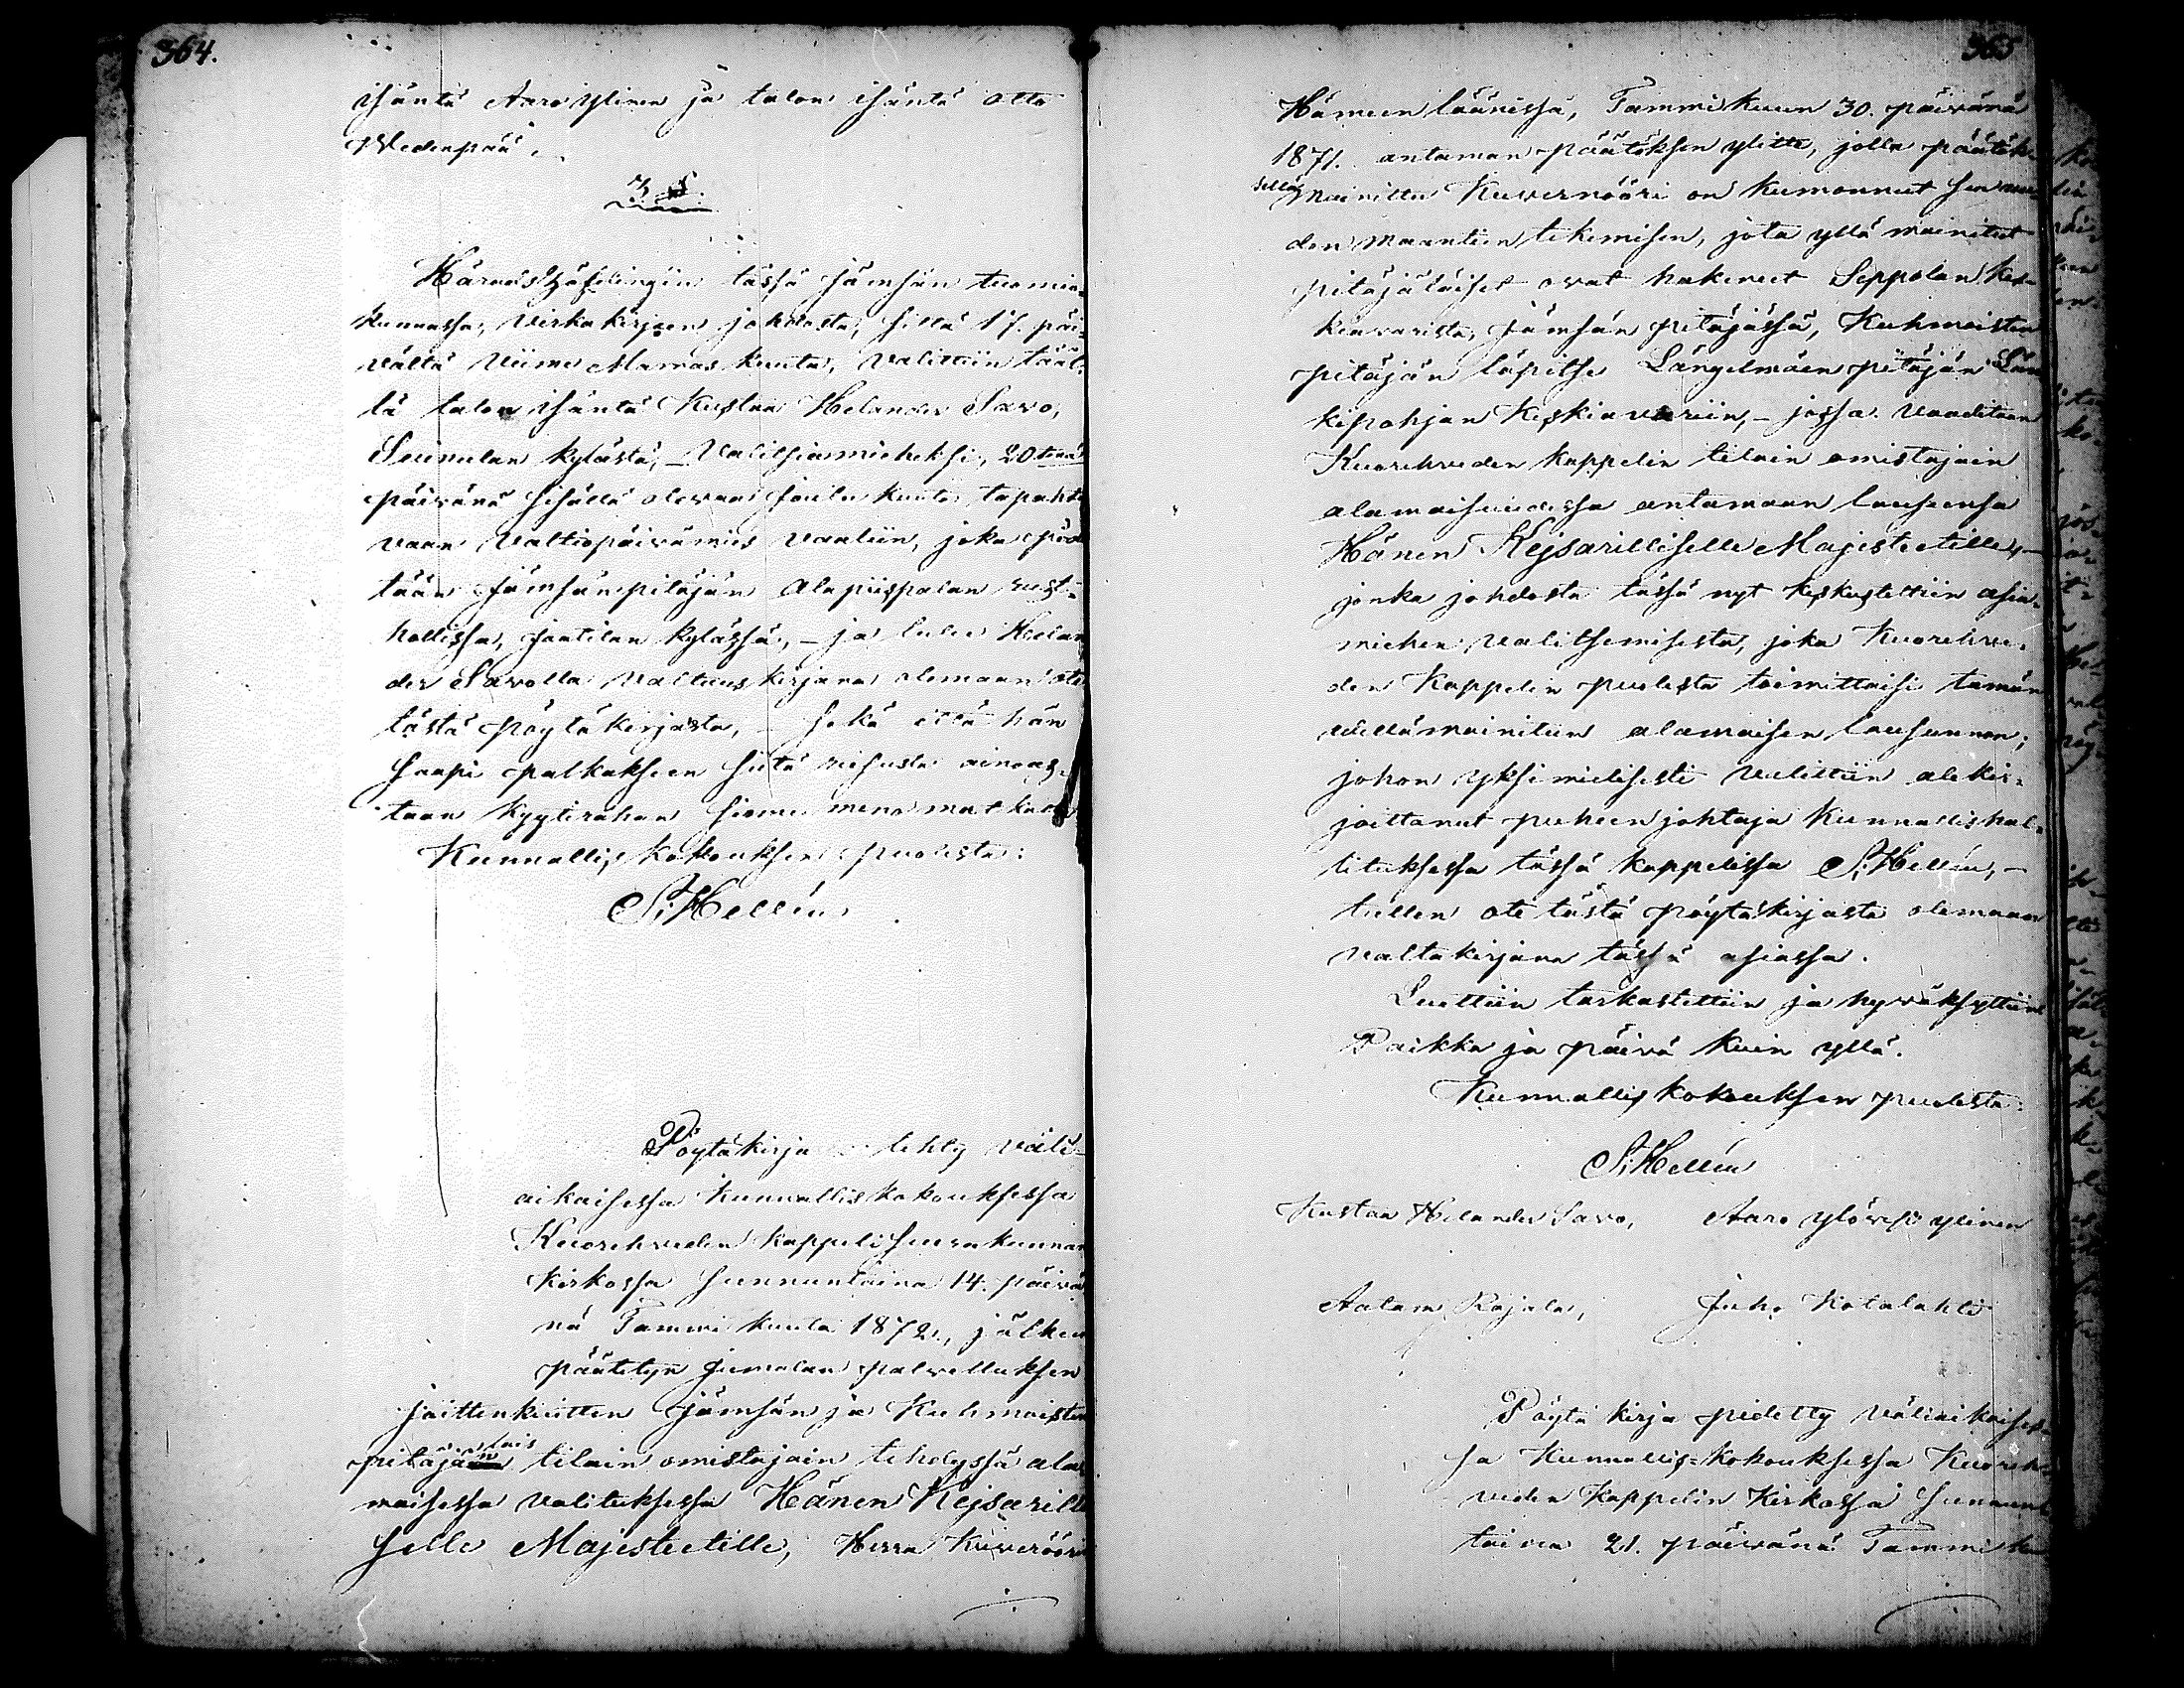 364.
isäntä Aaro Ylinen ja talon isäntä Otto
Wedenpää.
3 §.
Häradshöfdingin tässä Jämsän tuomio-
kunnassa, virkakirjeen johdosta, siltä 17. päi-
vältä viime Marraskuuta, valittiin tääl-
lä talon isäntä Kustaa Helander Savo,
Suinulan kylästä, – Valitsiamieheksi, 20 tenä
päivänä sisällä olevaa Joulu kuuta tapahtu
vaan Valtiopäivämies vaaliin, joka pide
tään Jämsänpitäjän Alapiispalan rust-
hollissa, Juatilan kylässä, – ja tulee Helan
der Savolla Valtuuskirjana olemaan ote
tästä pöytäkirjasta, – sekä että hän
saapi palkakseen siitä reisusta ainoas-
taan kyytirahan sinne meno matkasta
Kunnallis kokouksen puolesta:
S: Hellén
Pöytäkirja tehty väli-
aikaisessa Kunnallis kokouksessa
Kuorehveden kappeli seurakunnan
kirkossa sunnuntaina 14. päivä
nä Tammi kuuta 1872, jälken
päätetyn Jumalan palvelluksen
Joittenkuitten Jämsän ja Kuhmoisten
pitäjän lais tilain omistajain tehdyssä ala
maisessa valituksessa Hänen Kejsarilli
selle Majesteetille, Herra Kuvernöörin
365
Hämeen läänissä, Tammikuun 30. päivänä
1871. antaman päätöksen ylitte, jolla päätök-
sellä mainittu Kuvernööri on kumonnut sen uu-
den maantien tekemisen, jota yllä mainitut
pitäjäläiset ovat hakeneet Seppolan kes-
kievarista, Jämsän pitäjässä, Kuhmoisten
pitäjän läpitse Längelmäen pitäjän Län
kipohjan Keskievariin, – jossa vaaditaan
Kuorehveden kappelin tilain omistajain
alamaisuudessa antamaan lauseensa
Hänen Kejsarilliselle Majesteetille, –
jonka johdosta tässä nyt keskusteltiin asia-
miehen valitsemisesta, joka Kuorehve-
den Kappelin puolesta toimittaisi tämän
edellämainitun alamaisen lausunnon;
johon yksimielisesti valittiin allekir-
joittanut puheenjohtaja Kunnallishal-
lituksessa tässä kappelissa S: Hellén, –
tullen ote tästä pöytäkirjasta olemaan
valtakirjana tässä asiassa.
Luettiin tarkastettiin ja hyväksyttiin
Paikka ja päivä kuin yllä.
Kunnallis kokouksen puolesta:
S: Hellén
Kustaa Helander Savo, Aaro ylövesi ylinen
Aatam Rajala, Juho Kotalahti
Pöytä kirja pidetty väliaikaises-
sa Kunnallis-kokouksessa Kuoreh-
veden Kappelin Kirkossa Sunnun
taina 21. päivänä Tammiku